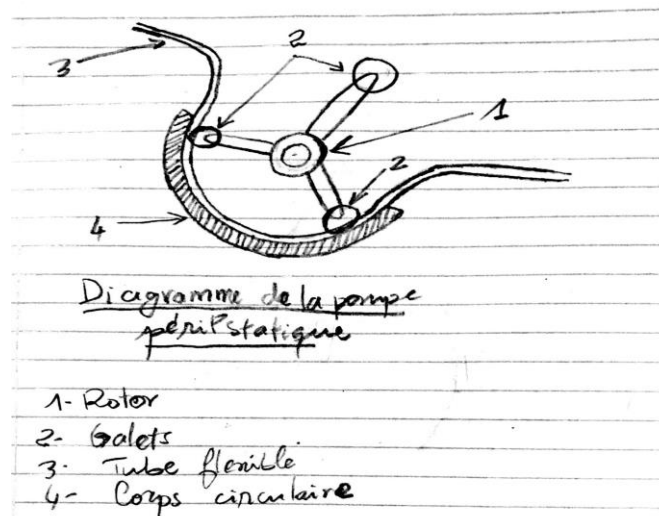 2
3
1
2
4
Diagramme de la pompe
péritstatique
1- Rotor
2- Galets
3- Tube flexible
4- Corps circulaire